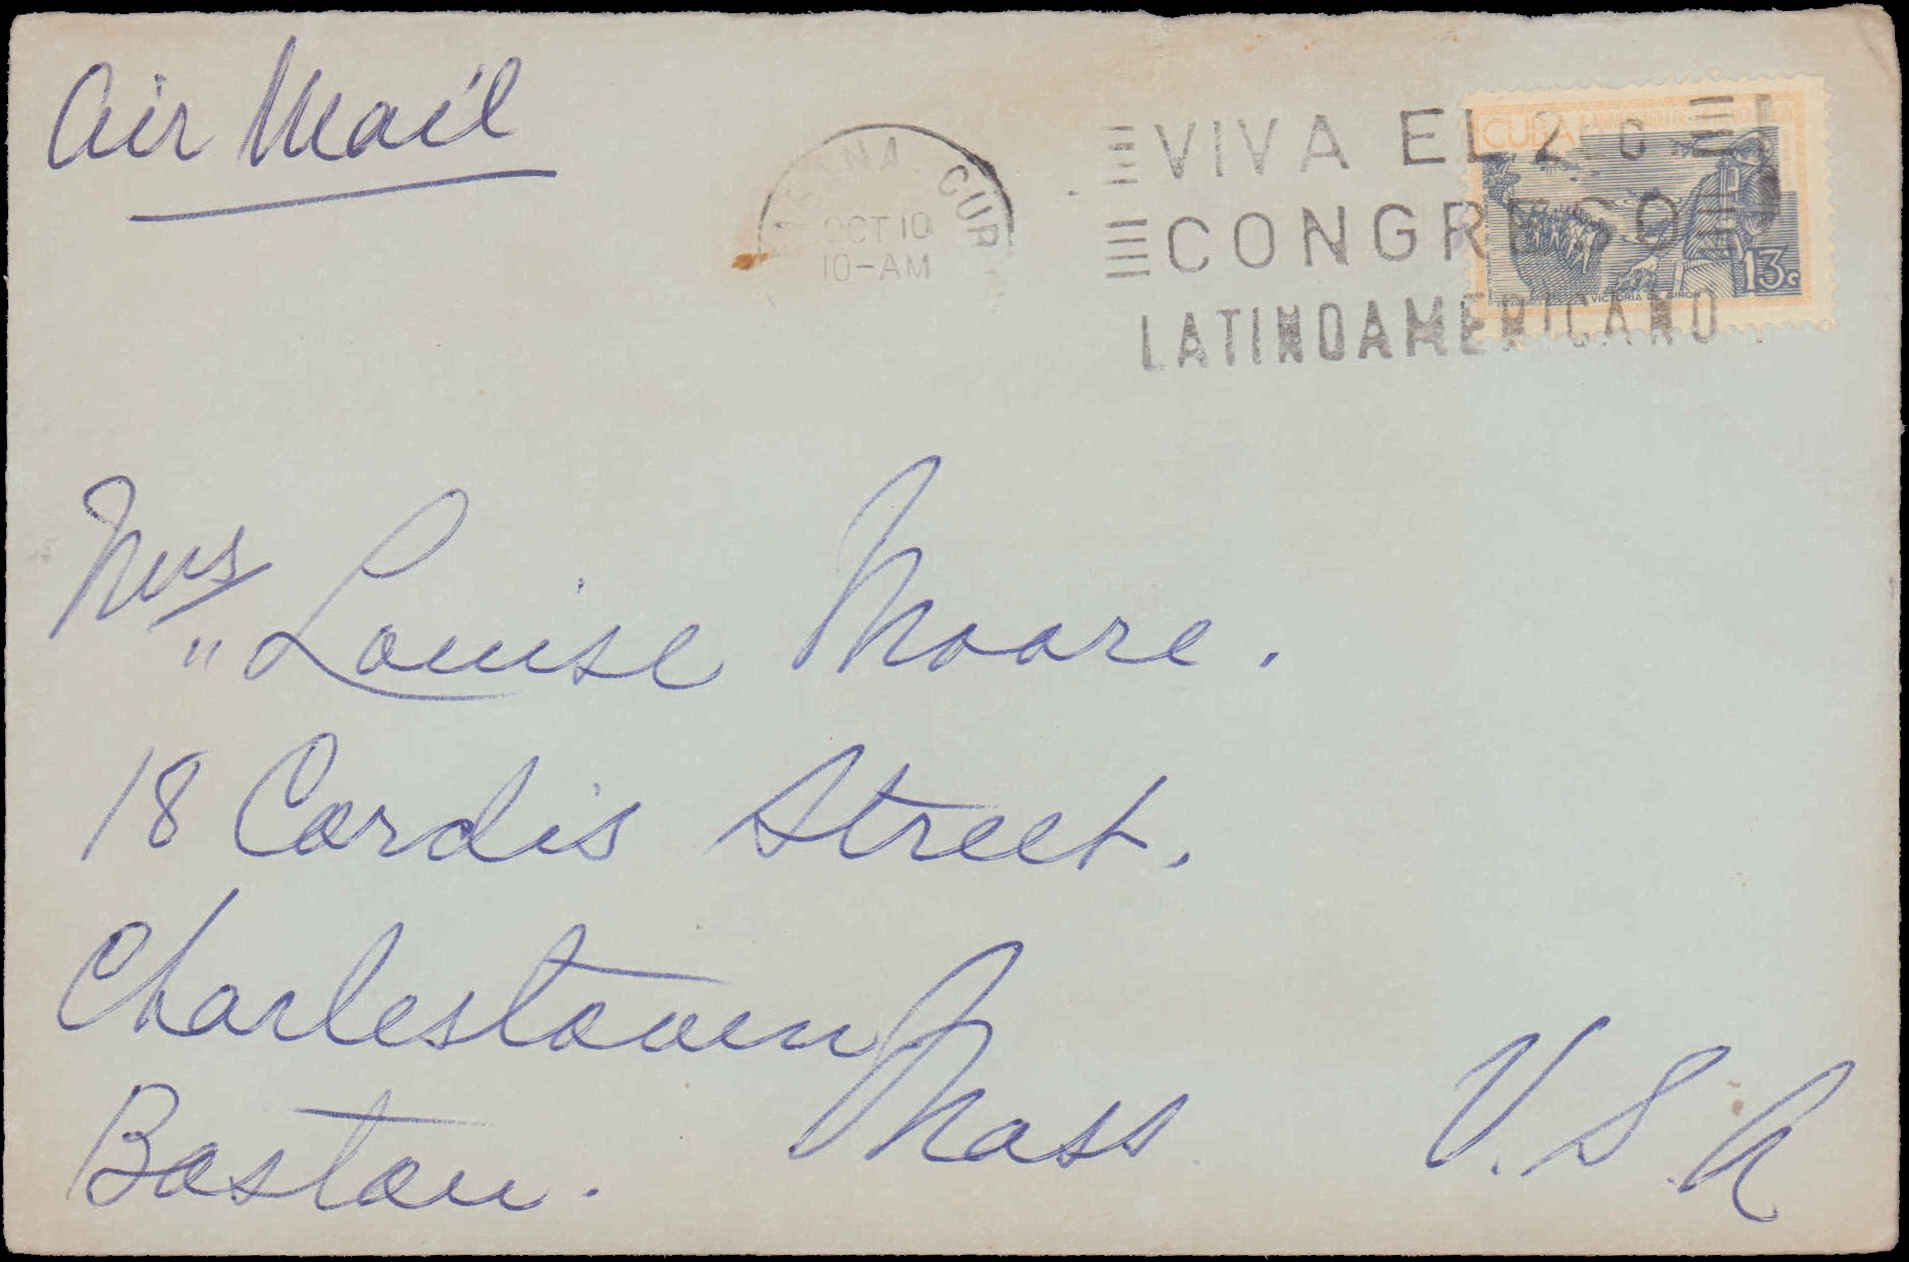 Air Mail
HABANA. CUB
OCT 10
10-AM
VIVA EL 2
CONGRESO
LATINOAMERICANO
CUBA
13c
VICTORIA DE GIRON
Mrs
" Louise Moore.
18 Cordis Street.
Charlestown
Mass
Boston.
U.S.A